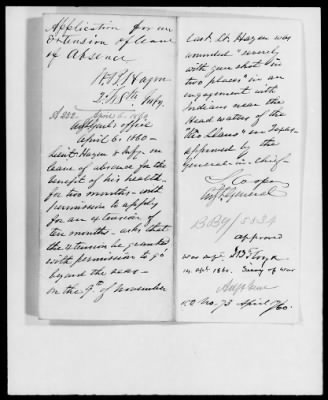 Application for an
Extension of leave
of Absence
W. B. Hazen
2. Lt 8th Infy.
April 6, 1860
Adjt. Genl's office
April 6, 1860—
Lieut Hazen 8 Infy. on
leave of absence for the
benefit of his health,
for two months— with
permission to apply
for an extension of
ten months— asks that
the extension be granted
with permission to go
beyond the seas—
on the 9th of November
Last, Lt. Hazen was
wounded "severely
with gun shot in
two places" in an
engagement with
Indians near the
Head waters of the
"Rio Llano" in Texas—
approved by the
General-in-chief
S. Cooper
Adjt General
approved
War Dept. J B Floyd
14 Apl. 1860. Secy of War
S.O. No. 73 April 17/60.